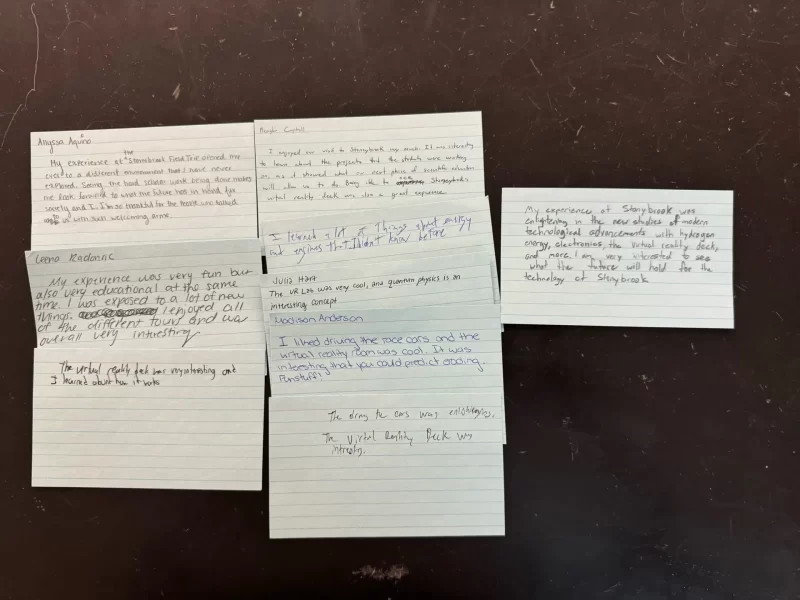 Anyssa Aquino
My experience at the Stonybrook Field Trip opened my
eyes to a different environment that I have never
explored. Seeing the hard science work being done makes
me look forward to what the future has in hand for
society and I. I'm so thankful for the people who talked
to us with such welcoming arms.
Leena Radoncic
My experience was very fun but
also very educational at the same
time. I was exposed to a lot of new
things. I enjoyed all
of the different tours and was
overall very interesting
The virtual reality deck was very interesting and
I learned about how it works
I enjoyed our visit to Stonybrook very much. It was interesting
to learn about the projects that the students were working
on, as it showed what our next phase of scientific education
will allow us to do. Being able to see Stonybrook's
virtual reality deck was also a great experience.
I learned a lot of things about energy
and engines that I didn't know before
Julia Hart
The VR Lab was very cool, and quantum physics is an
interesting concept
Madison Anderson
I liked driving the race cars and the
virtual reality room was cool. It was
interesting that you could predict
Funstuff!
The driving the cars was
The Virtual Reality Deck was
My experience at Stonybrook was
enlightening in the new studies of modern
technological advancements with hydrogen
energy, electronics, the virtual reality deck,
and more. I am very interested to see
what the future will hold for the
technology of Stonybrook